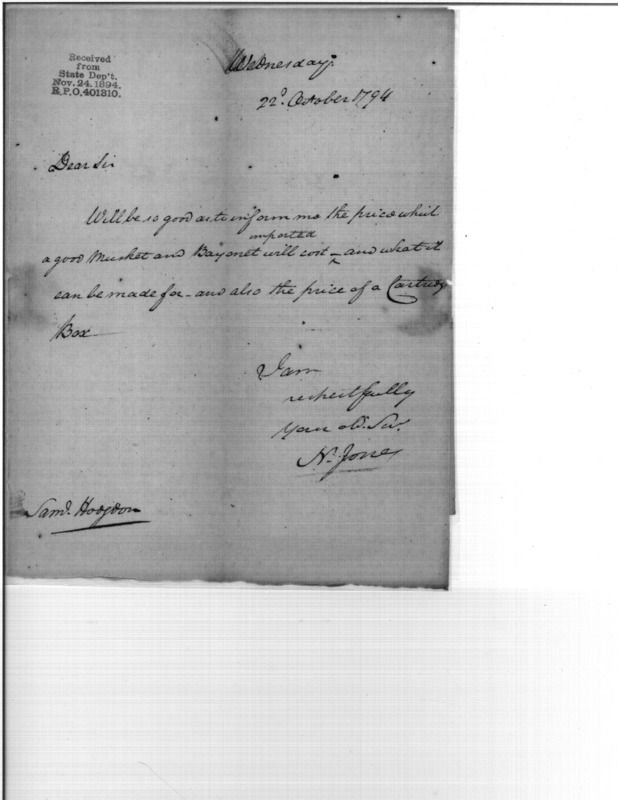 Received
from
State Dep't.
Nov. 24. 1894.
R.P.O. 401310.
Wednesday
22d. October 1794
Dear Sir
Will be so good as to inform me the price which
imported
a good Musket and Bayonet will cost ^ and what it
can be made for - and also the price of a Cartridge
Box
I am
respectfully
Your obt. Ser.
N. Jones
Saml. Hodgdon